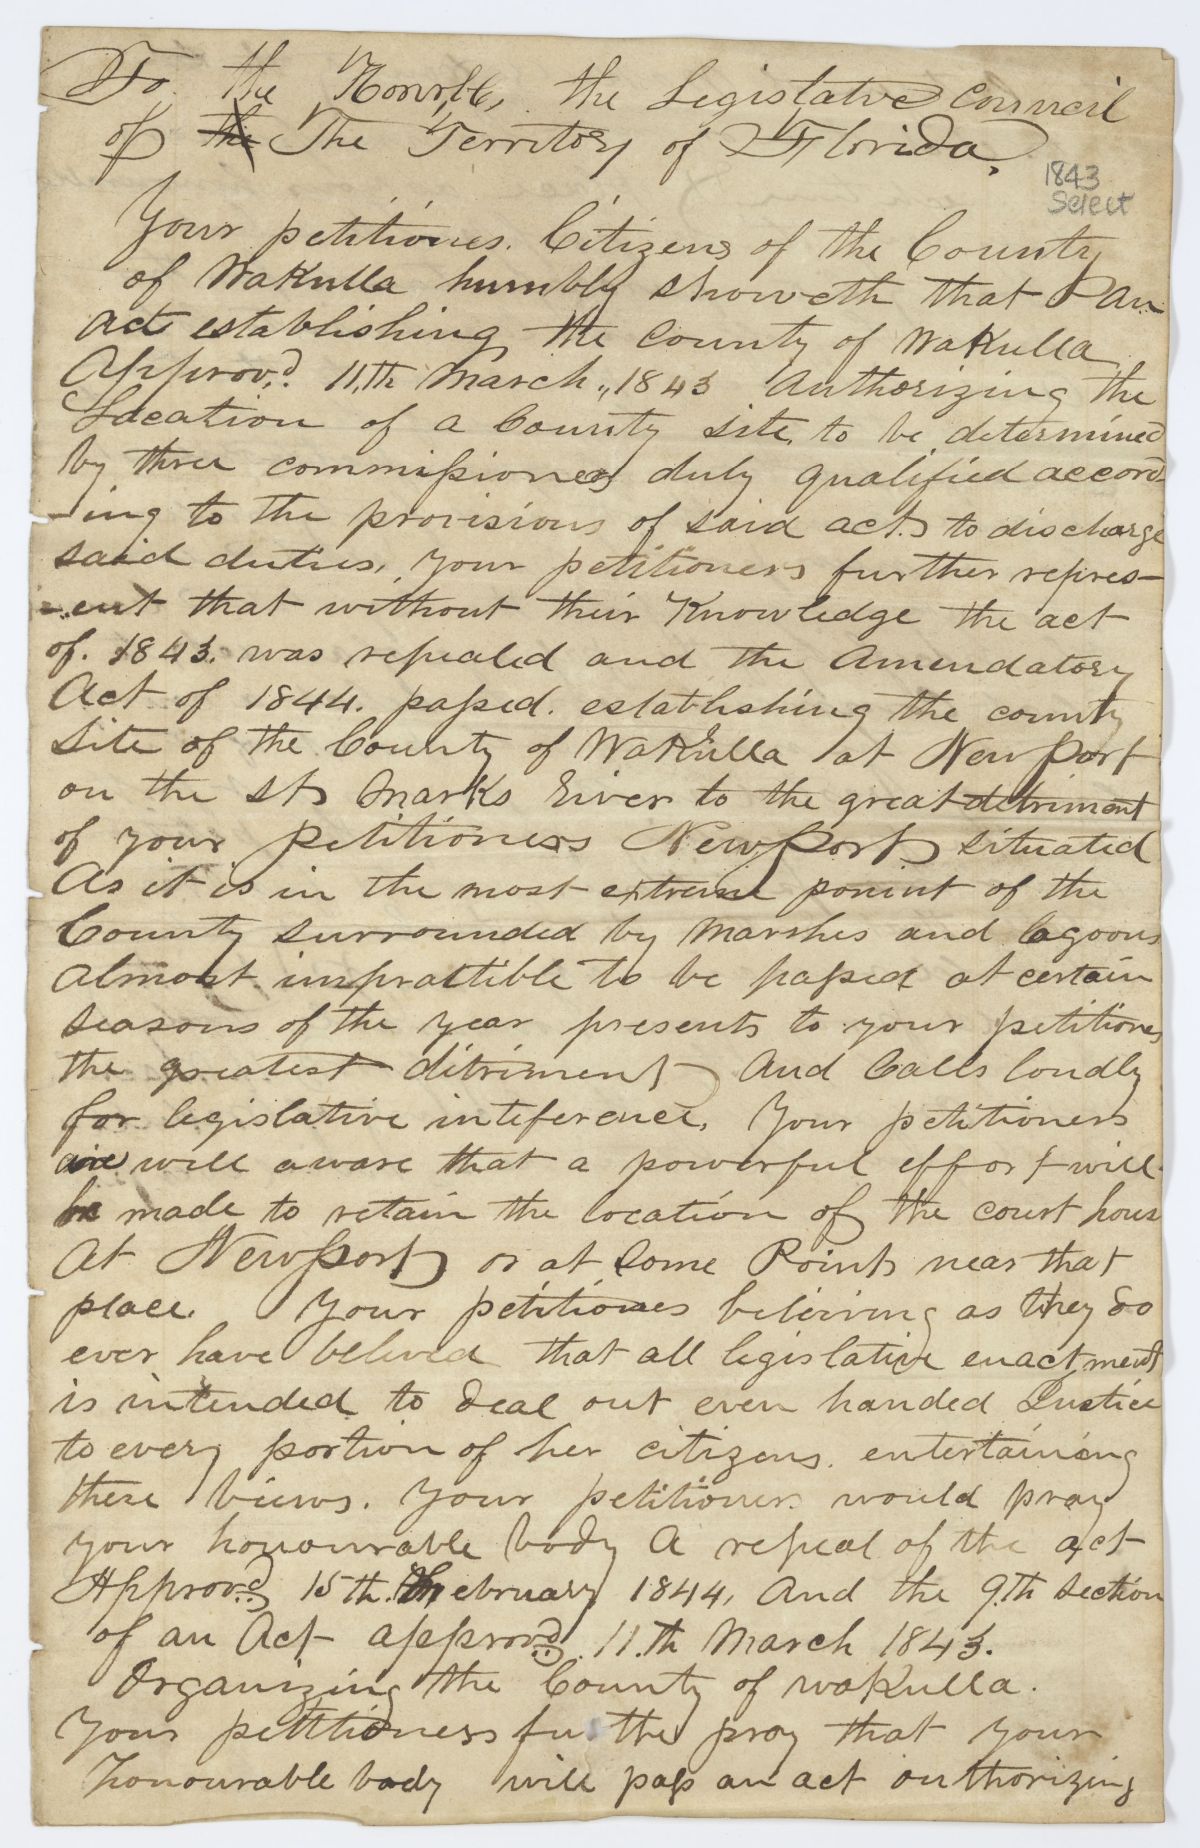 To the Honorble, the Legislative Council
of the The Territory of Florida,
1843
Select
Your petitiones. Citizens of the County
of Wakulla humbly showeth that An
act establishing the County of Wakulla
Approv,d. 11,th March,, 1843 Authorizing the
Location of a County site, to be determined
by three commissioners duly qualified accord
-ing to the provisions of said act. to discharge
said duties, Your petitioners further repres-
-ent that without their Knowledge the act
of. 1843. was repealed and the Amendatory
Act of 1844. passed. establishing the county
site of the County of Wakulla at Newport
on the St Marks River to the great detriment
of your petitioners Newport, situated
As it is in the most extreme ponint of the
County surrounded by Marshes and lagoons
almost impractible to be passed at certain
seasons of the year presents to your petitiones
the greatest ditriment And Calls loudly
for legislative inteference, Your petitioners
are will aware that a powerful effort will
be made to retain the location of the court hous
At Newport or at Some Point near that
place. Your petitiones beleiving as they do
ever have beleved that all legislative enactment
is intended to deal out even handed Justice
to every portion of her citizens. entertaining
these views. Your petitioners would pray
your honourable body A repeal of the act
Approv.d 15th. February 1844, And the 9.th section
of an Act approv.d 11.th March 1843.
Organizing the County of Wakulla.
Your petttioners further pray that your
honourable body will pass an act outhorizing